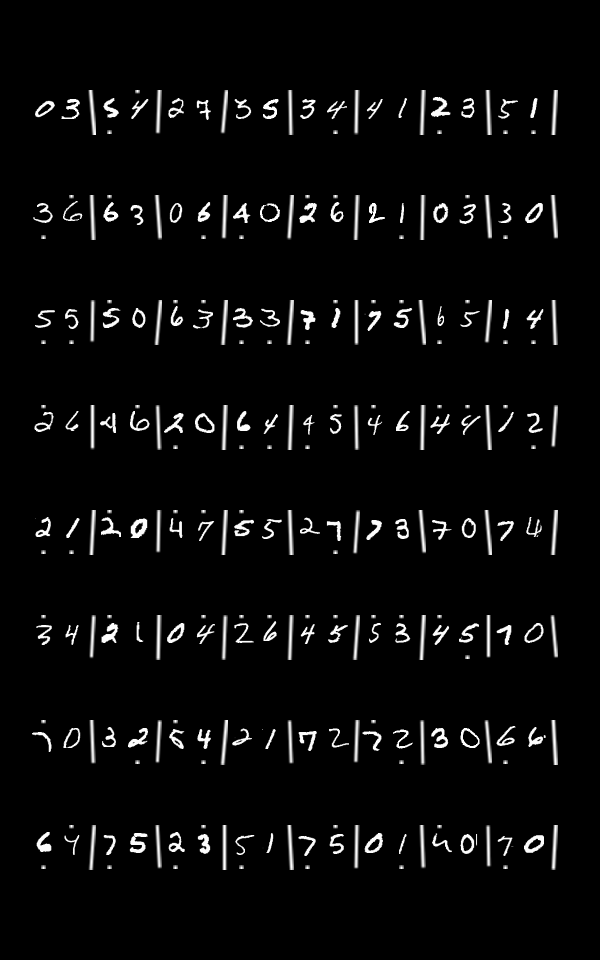 0 3 | 5 4 | 2 7 | 3 5 | 3 4 | 4 1 | 2 3 | 5 1 |
3 6 | 6 3 | 0 6 | 4 0 | 2 6 | 2 1 | 0 3 | 3 0 |
5 5 | 5 0 | 6 3 | 3 3 | 7 1 | 7 5 | 6 5 | 1 4 |
2 6 | 4 6 | 2 0 | 6 4 | 4 5 | 4 6 | 4 4 | 1 2 |
2 1 | 2 0 | 4 7 | 5 5 | 2 7 | 7 3 | 7 0 | 7 4 |
3 4 | 2 1 | 0 4 | 2 6 | 4 5 | 5 3 | 4 5 | 7 0 |
7 0 | 3 2 | 5 4 | 2 1 | 7 2 | 7 2 | 3 0 | 6 6 |
6 4 | 7 5 | 2 3 | 5 1 | 7 5 | 0 1 | 4 0 | 7 0 |